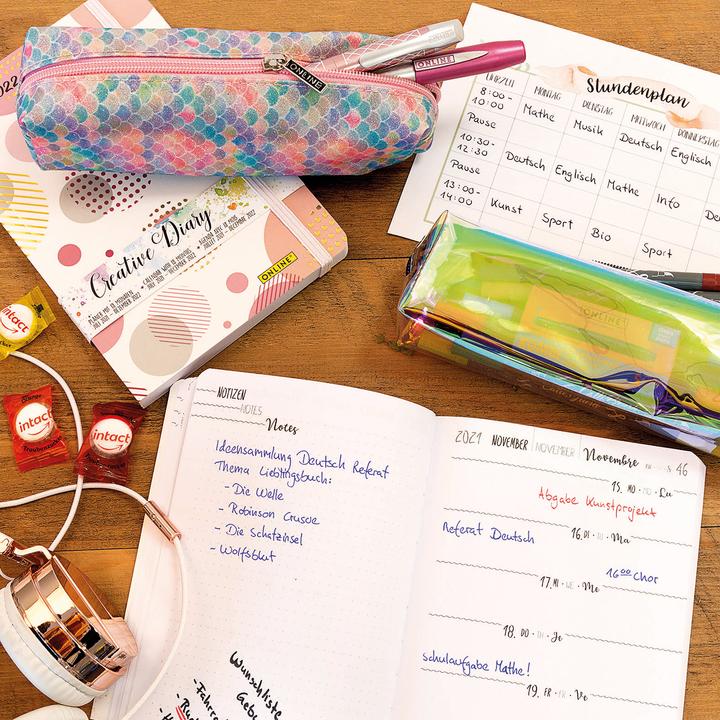 2022
ONLINE
ONLINE
Creative Diary
JULI 2021 - DEZEMBER 2022
CALENDAR WITH 18 MONTHS
JULY 2021 - DECEMBER 2022
ONLINE
Stundenplan
UHRZEIT MONTAG DIENSTAG MITTWOCH DONNERSTAG
8:00-10:00 Mathe Musik Deutsch Englisch
Pause
10:30-12:30 Deutsch Englisch Mathe Info De
Pause
13:00-14:00 Kunst Sport Bio Sport
ONLINE
intact
intact
Traubenzucker
intact
NOTIZEN
NOTES
Notes
Ideensammlung Deutsch Referat
Thema Lieblingsbuch:
- Die Welle
- Robinson Crusoe
- Die Schatzinsel
- Wolfsblut
Wunschliste
Gebu
- Fahrr
2021 NOVEMBER NOVEMBER Novembre 46
15. MO · MO · Lu
Abgabe Kunstprojekt
16. DI · TU · Ma
Referat Deutsch
17. MI · WE · Me
16⁰⁰ Chor
18. DO · TH · Je
19. FR · FR · Ve
Schulaufgabe Mathe!